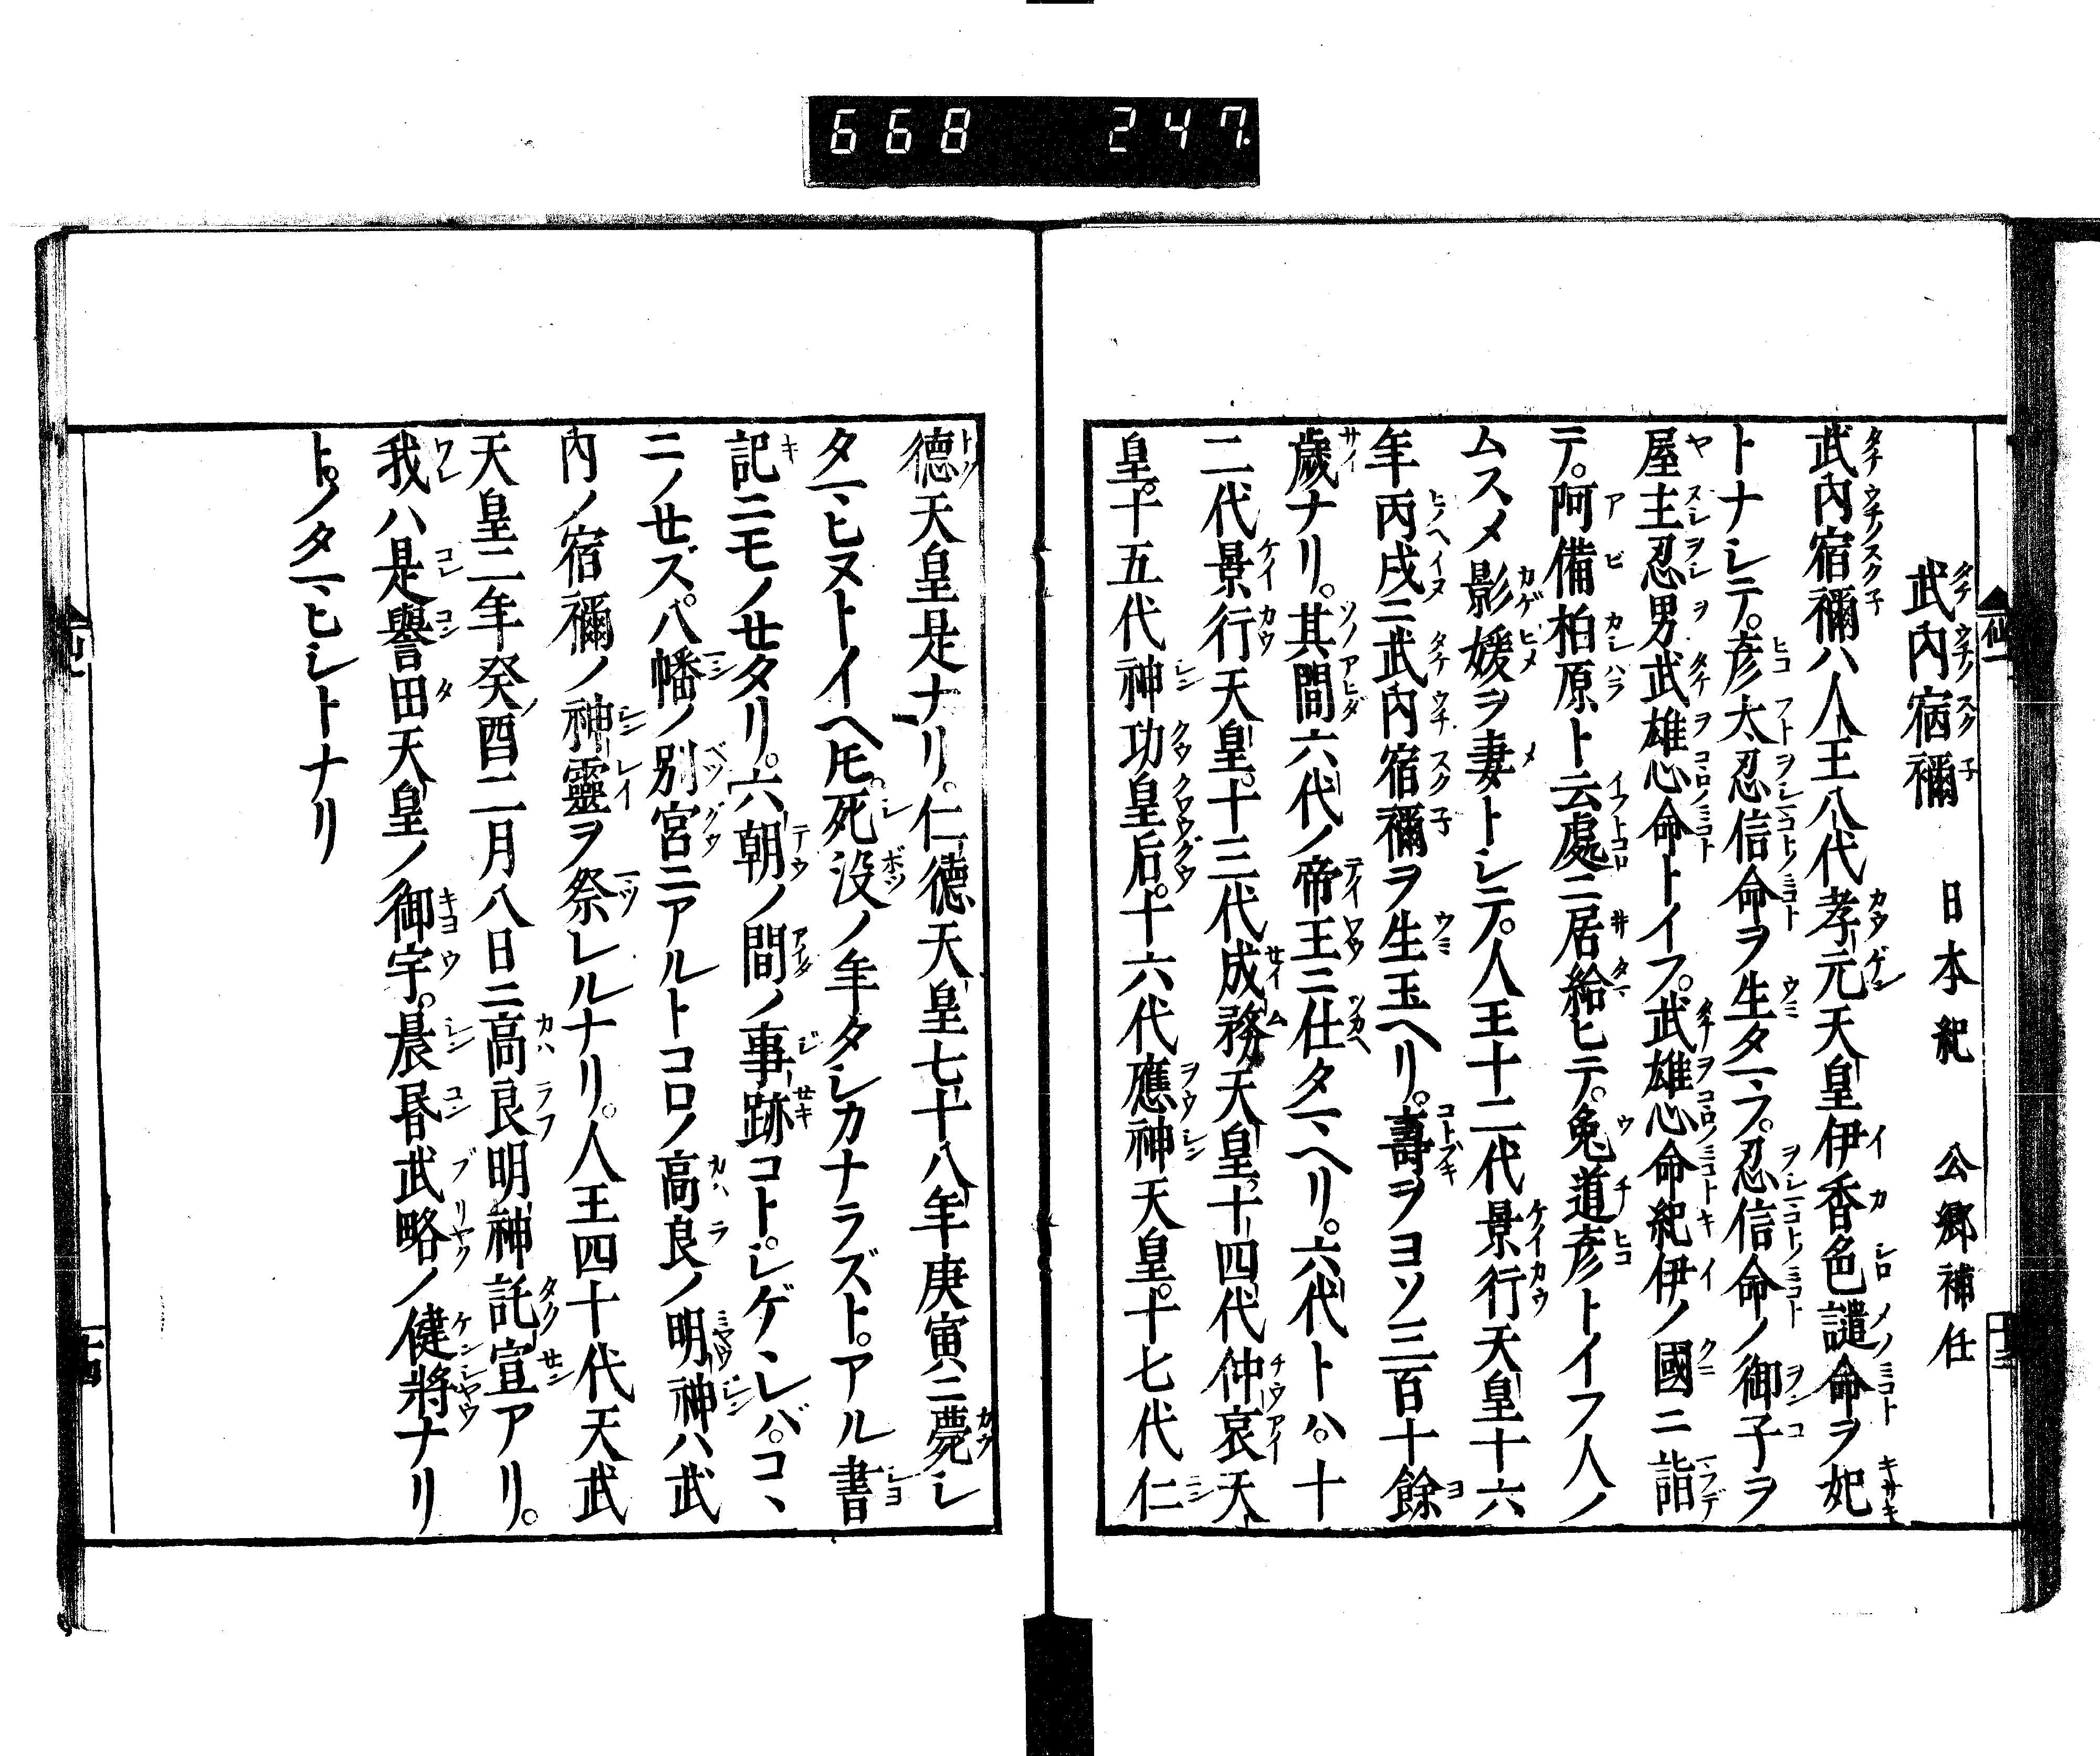 668 247
武内宿禰　日本紀　公卿補任
武内宿禰ハ人王八代孝元天皇伊香色謎命ヲ妃
トナシテ。彦太忍信命ヲ生タマフ。忍信命ノ御子ヲ
屋主忍男武雄心命トイフ。武雄心命紀伊ノ國ニ詣
テ。阿備柏原ト云處ニ居給ヒテ。兔道彦トイフ人ノ
ムスメ影媛ヲ妻トシテ。人王十二代景行天皇十六
年丙戌ニ武内宿禰ヲ生玉ヘリ。壽ヲヨソ三百十餘
歳ナリ。其間六代ノ帝王ニ仕タマヘリ。六代トハ。十
二代景行天皇。十三代成務天皇。十四代仲哀天
皇。十五代神功皇后。十六代應神天皇。十七代仁
德天皇是ナリ。仁德天皇七十八年庚寅ニ薨シ
タマヒヌトイヘ𪜈。死没ノ年タシカナラズト。アル書
記ニモノセタリ。六朝ノ間ノ事跡コト〲シゲヽレバ。コヽ
ニノセズ。八幡ノ別宮ニアルトコロノ高良ノ明神ハ武
内ノ宿禰ノ神靈ヲ祭レルナリ。人王四十代天武
天皇二年癸酉二月八日ニ高良明神託宣アリ。
我ハ是譽田天皇ノ御宇。晨昏武略ノ健將ナリ
ト。ノタマヒシトナリ